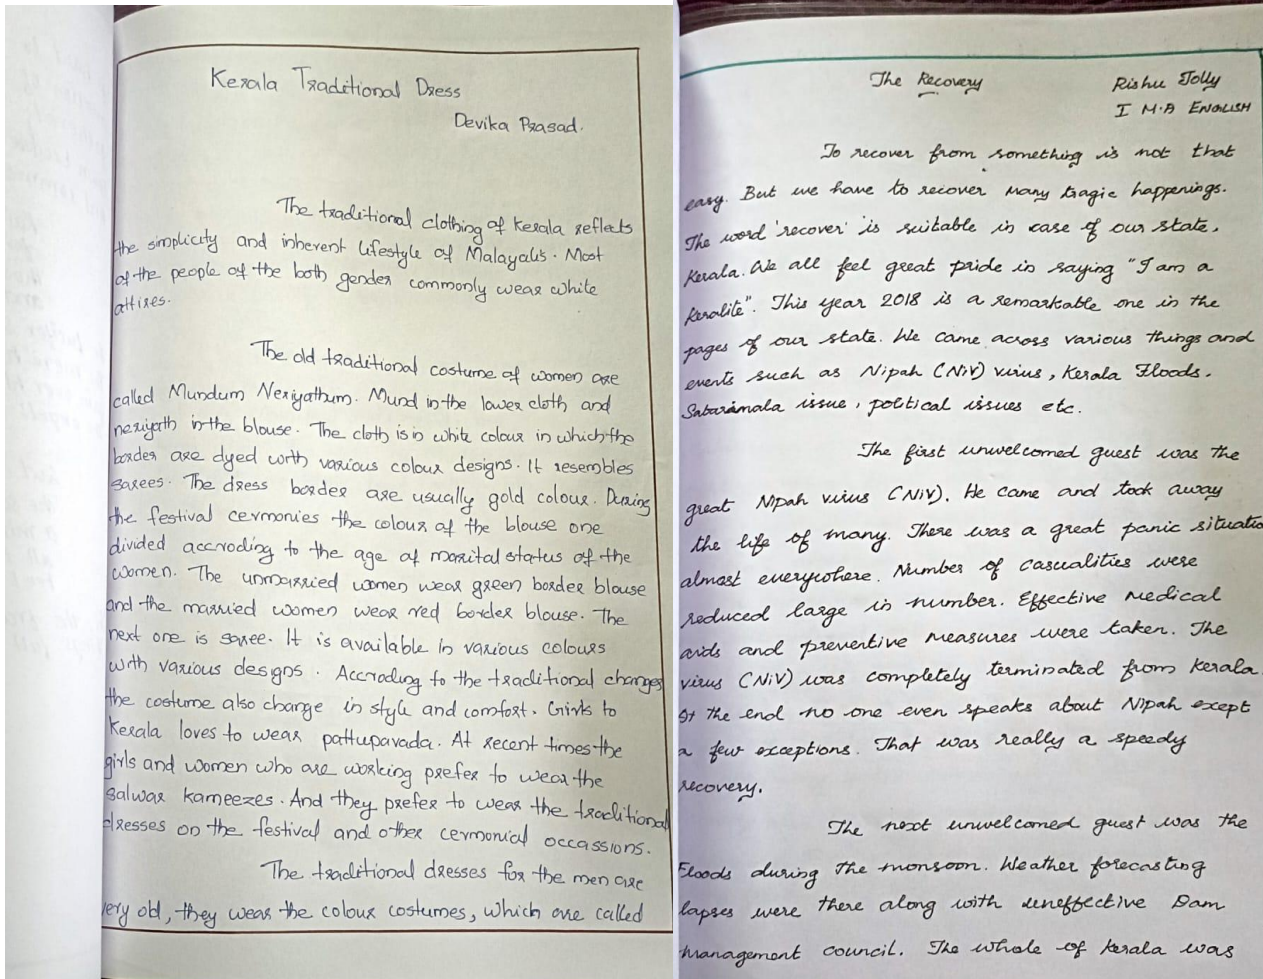 Kerala Traditional Dress
Devika Prasad.
The traditional clothing of Kerala reflects
the simplicity and inherent lifestyle of Malayalis. Most
of the people of the both gender commonly wear white
attires.
The old traditional costume of women are
called Mundum Neriyathum. Mund in the lower cloth and
neriyath in the blouse. The cloth is in white colour in which the
border are dyed with various colour designs. It resembles
sarees. The dress border are usually gold colour. During
the festival cermonies the colour of the blouse one
divided accroding to the age of marital status of the
women. The unmarried women wear green border blouse
and the married women wear red border blouse. The
next one is saree. It is available in various colours
with various designs. Accroding to the traditional changes
the costume also change in style and comfort. Girls to
Kerala loves to wear pattupavada. At recent times the
girls and women who are working prefer to wear the
salwar kameezes. And they prefer to wear the traditional
dresses on the festival and other cermonial occassions.
The traditional dresses for the men are
very old, they wear the colour costumes, which are called
The Recovery
Rishu Jolly
I M.A ENGLISH
To recover from something is not that
easy. But we have to recover many tragic happenings.
The word 'recover' is suitable in case of our state,
Kerala. We all feel great pride in saying "I am a
Keralite". This year 2018 is a remarkable one in the
pages of our state. We came across various things and
events such as Nipah (NiV) virus, Kerala Floods,
Sabarimala issue, political issues etc.
The first unwelcomed guest was the
great Nipah virus (NiV). He came and took away
the life of many. There was a great panic situatio
almost everywhere. Number of casualities were
reduced large in number. Effective medical
aids and preventive measures were taken. The
virus (NiV) was completely terminated from Kerala.
At the end no one even speaks about Nipah except
a few exceptions. That was really a speedy
recovery.
The next unwelcomed guest was the
Floods during the monsoon. Weather forecasting
lapses were there along with uneffective Dam
management council. The whole of Kerala was